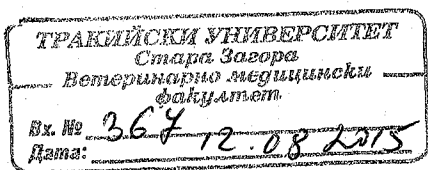 ТРАКИЙСКИ УНИВЕРСИТЕТ
Стара Загора
Ветеринарно медицински
факултет
Вх. № 367
Дата: 12.08 2015